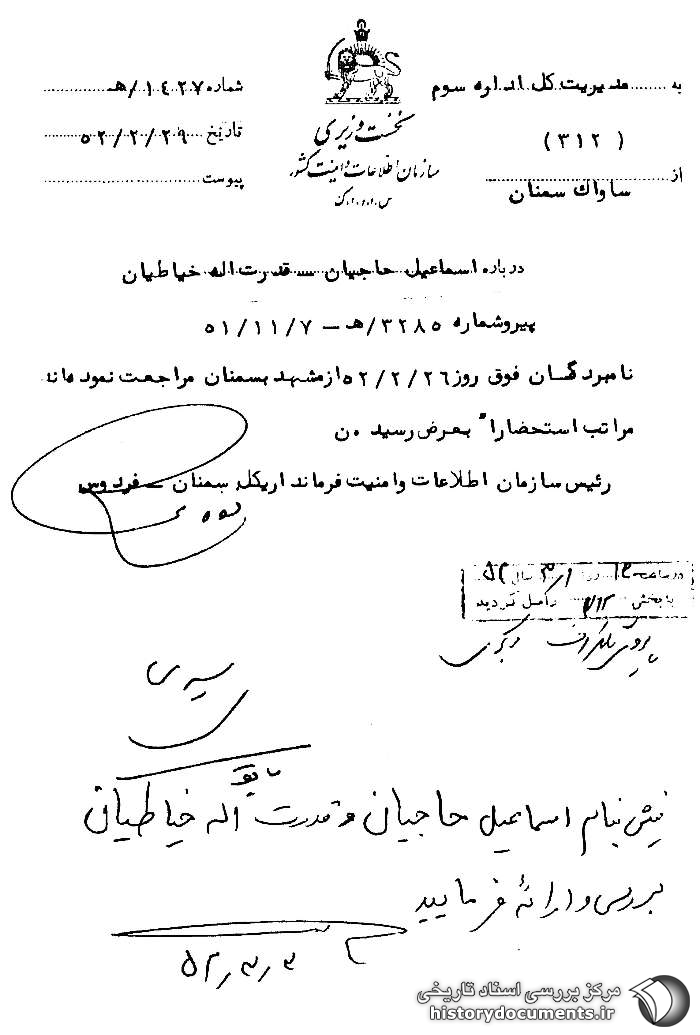 به مدیریت کل اداره سوم
(۳۱۲)
از ساواک سمنان
نخست وزیری
سازمان اطلاعات و امنیت کشور
س.ا.و.ا.ک
شماره ۱۴۲۷/هـ
تاریخ ۵۲/۲/۲۹
پیوست
درباره اسماعیل حاجیان ــ قدرت اله خیاطیان
پیرو شماره ۳۲۸۵/هـ ــ ۵۱/۱۱/۷
نامبردگان فوق روز ۵۲/۲/۲۶ از مشهد بسمنان مراجعت نموده اند
مراتب استحضاراً بعرض رسید . ن
رئیس سازمان اطلاعات وامنیت فرمانداریکل سمنان ــ فردوس
در ساعت روز سال ۵۲
بابخش ۳۱۲ گردید
فیش بنام اسماعیل حاجیان و قدرت اله خیاطیان
سابقه
بررسی و ارائه فرمایید
۵۲٫۳٫۳
مرکز بررسی اسناد تاریخی
historydocuments.ir